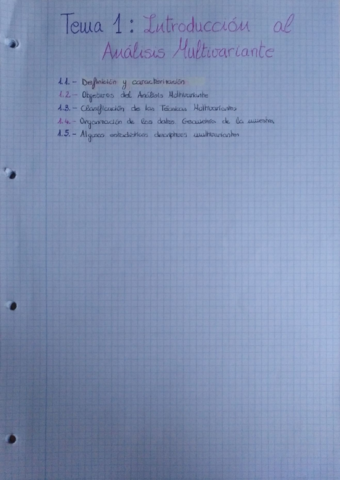 Tema 1: Introducción al
Análisis Multivariante
1.1.- Definición y caracterización
1.2.- Objetivos del Análisis Multivariante
1.3.- Clasificación de las Técnicas Multivariantes
1.4.- Organización de los datos. Geometría de la muestra
1.5.- Algunos estadísticos descriptivos multivariantes